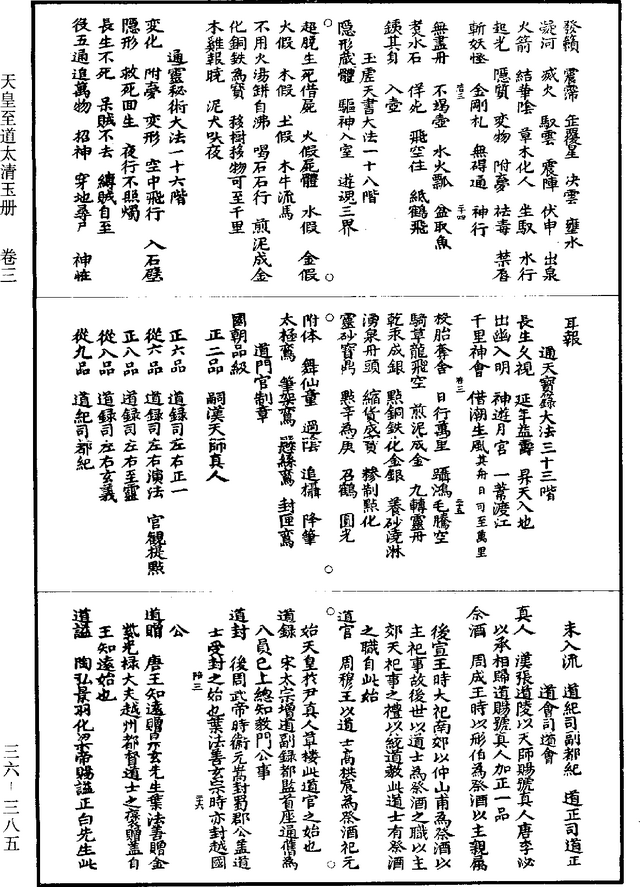 發績 震霈 正覆星 決雲 壅水
凝河 滅火 馭雲 震陣 伏申 出泉
火箭 結華蓋 草木化人 坐馭 水行
起光 隱質 變物 附夢 祛毒 禁香
斬妖怪 金剛札 無碍通 神行
無盡舟 不場壺 水火瓢 盆取魚
煑水石 佯死 飛空住 紙鶴飛
鐵其身 入壺
玉虛天書大法一十八階
隱形蔵體 驅神入室 遊魂三界
超脫生死借屍 火假屍體 水假 金假
火假 木假 土假 木牛流馬
不用火湯餅自沸 喝石石行 煎泥成金
化銅鉄為寶 移樹移物可至千里
木雞報曉 泥犬吠夜
通靈秘術大法一十六階
變化 附夢 變形 空中飛行 入石壁
隱形 救死回生 夜行不照燭
長生不死 呆賊不去 縛賊自至
役五通追萬物 招神 穿地尋尸 神性
耳報
通天寶籙大法三十三階
長生久視 延年益壽 昇天入地
出幽入明 神遊月宮 一葦渡江
千里神會 借潮生風其舟日可至萬里
投胎奪舍 日行萬里 躡鴻毛騰空
騎草龍飛空 煎泥成金 九轉靈丹
乾汞成銀 點銅鉄化金銀 養砂澆淋
湧泉丹頭 縮貨盛寶 糝制點化
靈砂寶鼎 點辛為庚 召鶴 圓光
附体 舞仙童 過陰 追攝 降筆
太極鸞 筆架鸞 懸絲鸞 封匣鸞
道門官制章
國朝品級
正二品 嗣漢天師真人
正六品 道録司左右正一
從六品 道録司左右演法 官觀提點
正八品 道録司左右至靈
從八品 道録司左右玄義
從九品 道紀司都紀
未入流 道紀司副都紀 道正司道正
道會司道會
真人 漢張道陵以天師賜號真人唐李泌
以承相歸道賜號真人加正一品
祭酒 周成王時以彤伯為祭酒以主親屬
後宣王時大祀南郊以仲山甫為祭酒以
主祀事故後世以道士為祭酒之職以主
郊天祀事之禮以統道教此道士有祭酒
之職自此始
道官 周穆王以道士高栱震為祭酒祀元
始天皇於尹真人草樓此道官之始也
道録 宋太宗増道副録都監首座逼舊為
八員已上總知教門公事
道封 後周武帝時衞元嵩封蜀郡公盖道
士受封之始也葉法善玄宗時亦封越國
公
道贈 唐王知遠贈昇玄先生葉法善贈金
紫光禄大夫越州都督道士之褒贈蓋自
王知遠始也
道謚 陶弘景羽化梁帝賜謚正白先生此
天皇至道太清玉册 卷三
三六－三八五